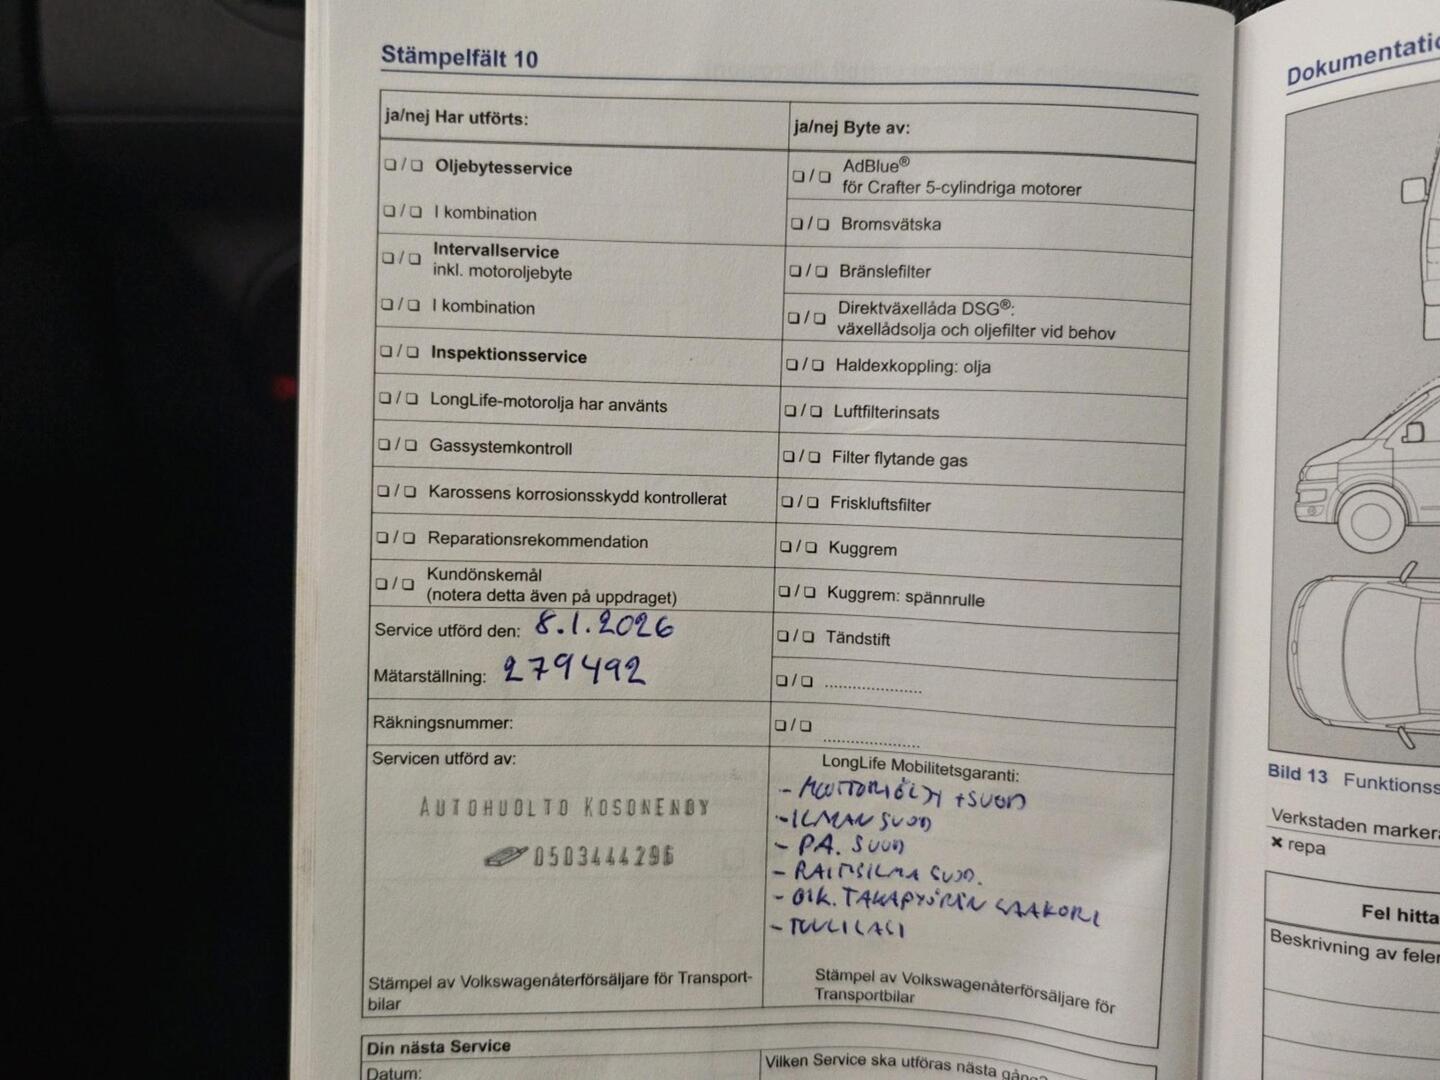 Stämpelfält 10
ja/nej Har utförts:
❏ / ❏ Oljebytesservice
❏ / ❏ I kombination
❏ / ❏ Intervallservice
inkl. motoroljebyte
❏ / ❏ I kombination
❏ / ❏ Inspektionsservice
❏ / ❏ LongLife-motorolja har använts
❏ / ❏ Gassystemkontroll
❏ / ❏ Karossens korrosionsskydd kontrollerat
❏ / ❏ Reparationsrekommendation
❏ / ❏ Kundönskemål
(notera detta även på uppdraget)
Service utförd den: 8.1.2026
Mätarställning: 279492
Räkningsnummer:
Servicen utförd av:
AUTOHUOLTO KOSONEN OY
0503444296
Stämpel av Volkswagenåterförsäljare för Transport-
bilar
ja/nej Byte av:
❏ / ❏ AdBlue®
för Crafter 5-cylindriga motorer
❏ / ❏ Bromsvätska
❏ / ❏ Bränslefilter
❏ / ❏ Direktväxellåda DSG®:
växellådsolja och oljefilter vid behov
❏ / ❏ Haldexkoppling: olja
❏ / ❏ Luftfilterinsats
❏ / ❏ Filter flytande gas
❏ / ❏ Friskluftsfilter
❏ / ❏ Kuggrem
❏ / ❏ Kuggrem: spännrulle
❏ / ❏ Tändstift
❏ / ❏ .....................
❏ / ❏ .....................
LongLife Mobilitetsgaranti:
- MOOTTORIÖLJY + SUOD
- ILMAN SUOD
- PA. SUOD
- RAITISILMA SUOD.
- OIK. TAKAPYÖRÄN LAAKERI
- TUULILASI
Stämpel av Volkswagenåterförsäljare för
Transportbilar
Din nästa Service
Datum:
Vilken Service ska utföras nästa gång?
Dokumentatio
Bild 13 Funktionss
Verkstaden markera
✖ repa
Fel hitta
Beskrivning av felen